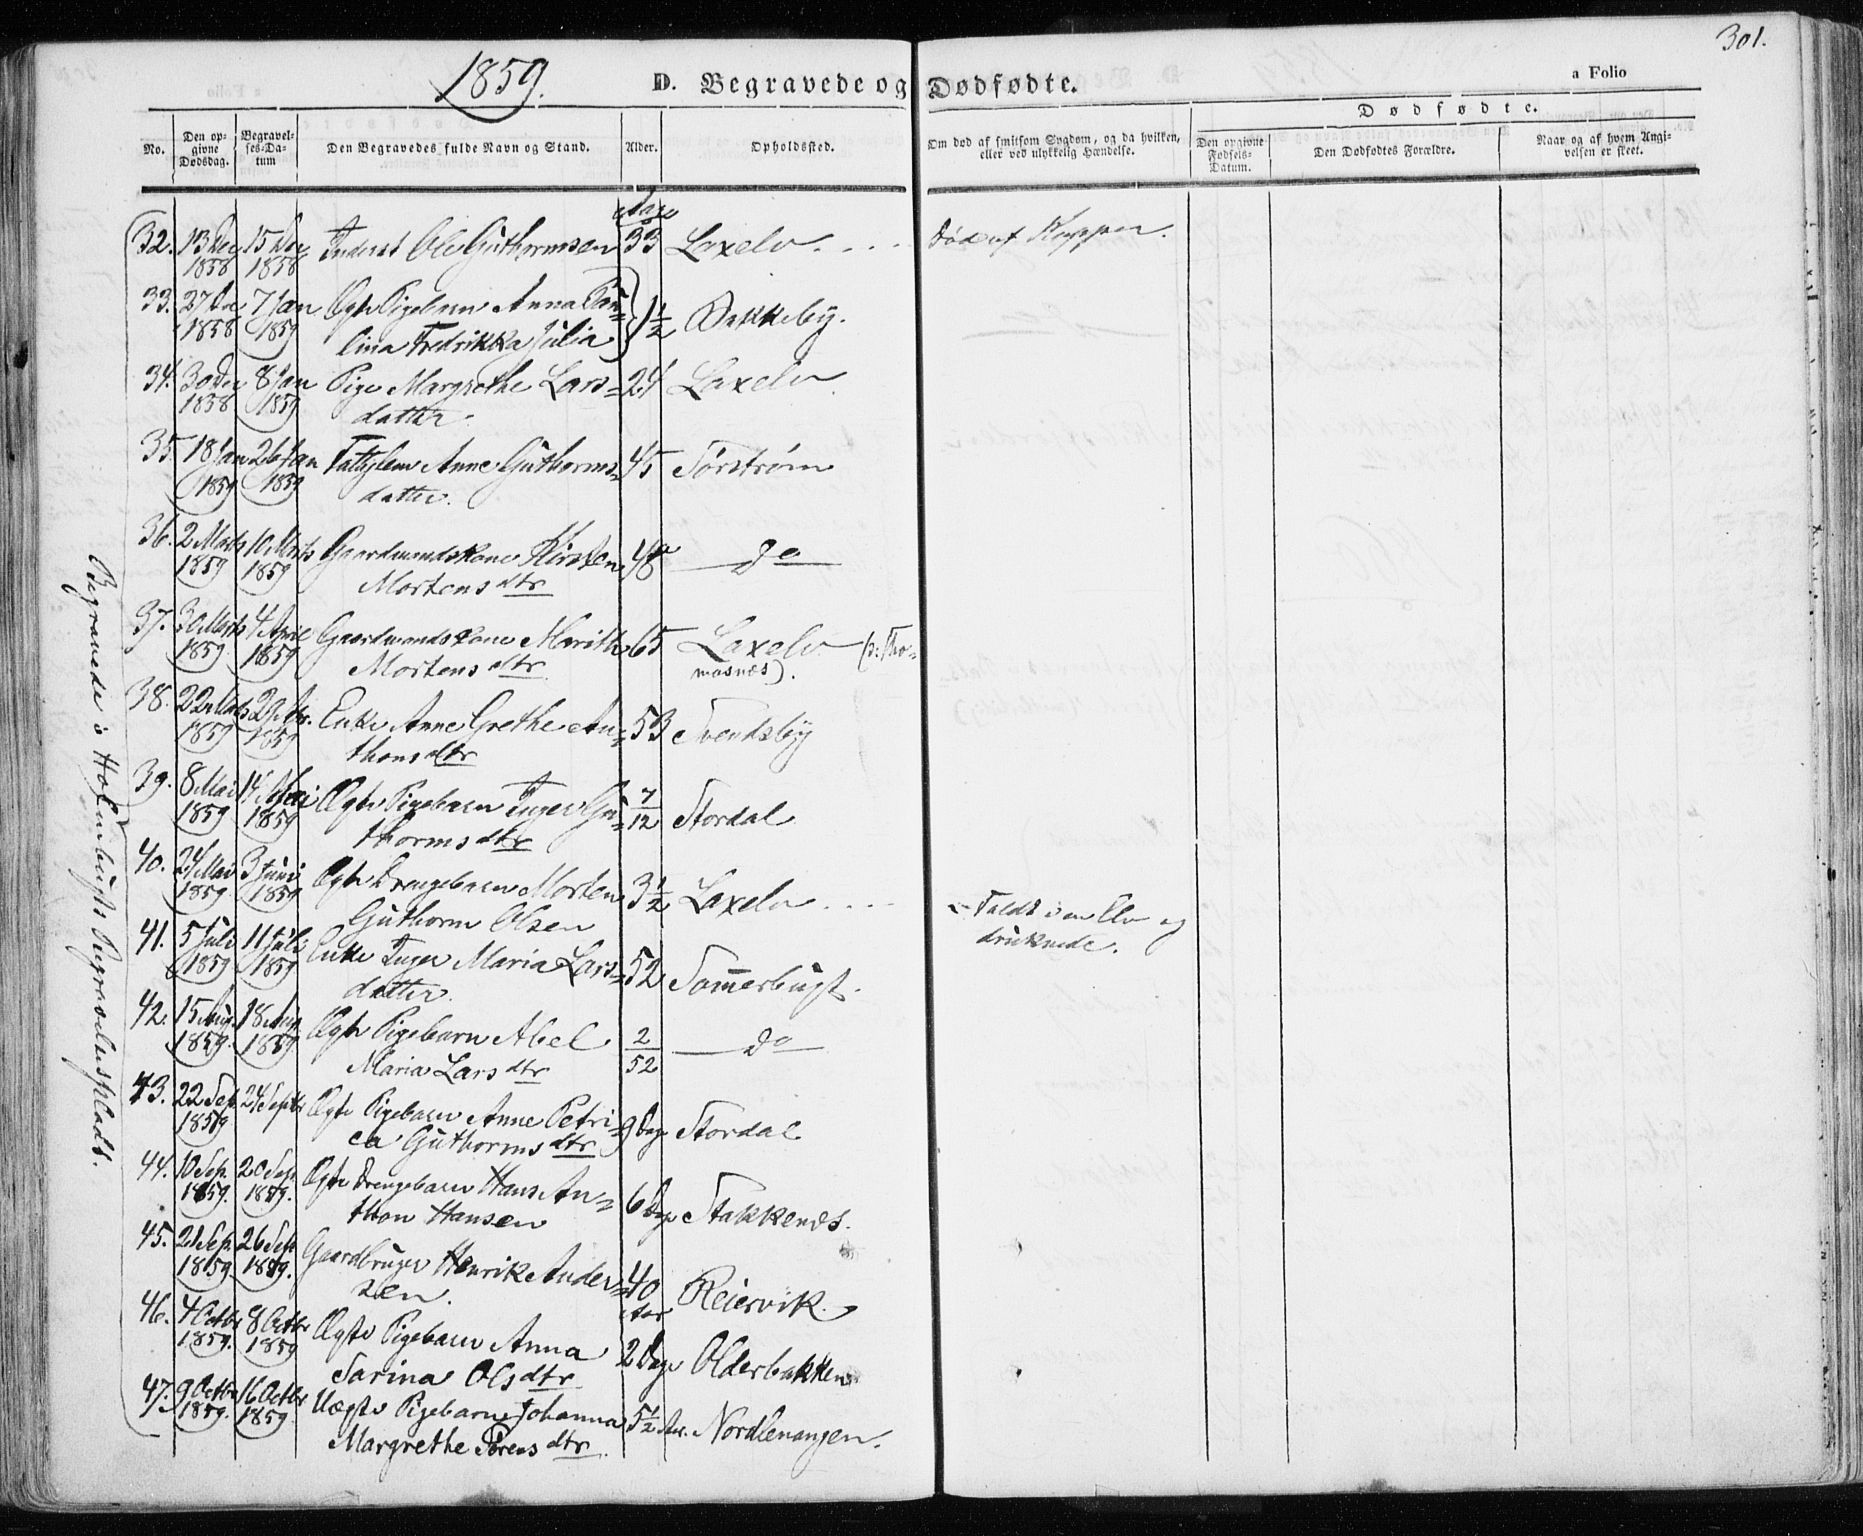 301.
1859. D. Begravede og Dødfødte. a Folio
No. Den opgivne Dødsdag. Begravelses-Datum Den Begravedes fulde Navn og Stand. Alder. Opholdssted. Om død af smitsom Sygdom, og da hvilken, eller ved ulykkelig Hændelse. Dødfødte. Den opgivne Fødsels-Datum. Den Dødfødtes Forældre. Naar og af hvem Angivelsen er skeet.
32. 13 Dec 15 Dec Inderst Ole Guthormsen 33 Laxelv. død af Kopper.
1858 1858
33. 27 Dec 7 Jan Ægte Pigebarn Anna Pau= 1 1/2 Bakkeby.
1858 1859 lina Fredrikka Julia
34. 30 Dec 8 Jan Pige Margrethe Lars= 24 Laxelv
1858 1859 datter.
35. 18 Jan 26 Jan Anne Guthorms= 45 Sørstrøm
1859 1859 datter.
36. 2 Marts 10 Marts Gaardmandskone Kirsten 48 do
1859 1859 Mortensdtr
37. 30 Marts 4 April Gaardmandskone Marith 65 Laxelv (ɔ: Tho=
1859 1859 Mortensdtr masnæs).
38. 22 Marts 29 Enke Anne Grethe An= 53 Svendsby
1859 1859 thonsdtr
39. 8 Mai 14 Mai Ægte Pigebarn Inger Gu= 7/12 Stordal
1859 1859 thormsdtr
40. 24 Mai 3 Juni Ægte Drengebarn Morten 3 1/2 Laxelv Faldt i en Elv og
1859 1859 Guthorm Olsen druknede.
41. 5 Juli 11 Juli Enke Inger Maria Lars= 52 Som̄erbugt.
1859 1859 datter.
42. 15 Aug. 18 Aug Ægte Pigebarn Abel 2/52 do
1859. 1859 Maria Larsdtr
43. 22 Sep. 24 Septbr Ægte Pigebarn Anne Petri= 9 Dage Stordal
1859 ca Guthormsdtr
44. 10 Sep. 20 Sep. Ægte Drengebarn Hans An= 6 Dage Stakkenæs.
1859. 1859. thon Hansen
45. 21 Sep. 26 Sep Gaardbruger Henrik Ander= 40 Aar Reiervik.
1859. 1859. sen.
46. 4 Octbr 8 Octbr Ægte Pigebarn Anna 2 Dage Olderbakken
1859. 1859 Sarina Olsdtr
47. 9 Octbr 16 Octbr Uægte Pigebarn Johanna 5 1/2 Aar. Nordlenangen.
1859. 1859 Margrethe Sørensdtr.
Begravede i Holmbugts Begravelsesplads.